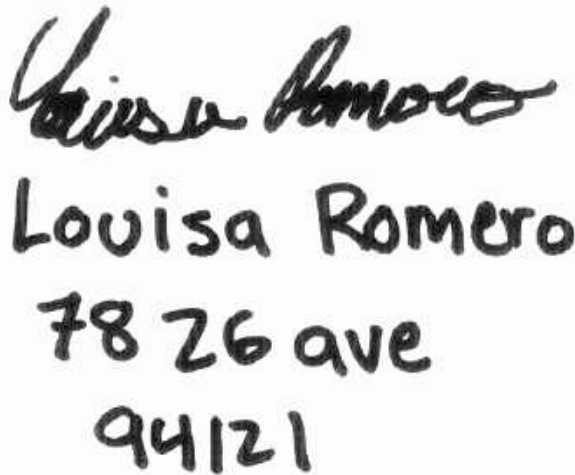 Louisa Romero
Louisa Romero
78 26 ave
94121